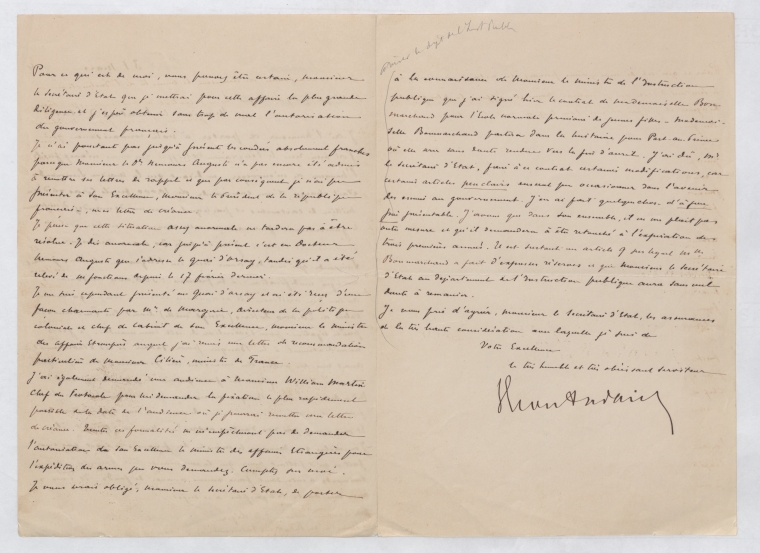 Pour ce qui est de moi, vous pouvez être certain, monsieur
le Secrétaire d'Etat que je mettrai pour cette affaire la plus grande
diligence et j'espère obtenir sans trop de mal l'autorisation
du gouvernement français.
Je n'ai pourtant pas jusqu'à présent les coudées absolument franches
parce que Monsieur le Dr Nemours Auguste n'a pas encore été admis
à remettre ses lettres de rappel et que par conséquent je n'ai pu
présenter à Son Excellence, Monsieur le Président de la république
française, mes lettres de créance.
Je pense que cette situation assez anormale ne tardera pas à être
résolue. Je dis anormale, car jusqu'à présent c'est au Docteur
Nemours Auguste que s'adresse le Quai d'Orsay, tandis qu'il a été
relevé de ses fonctions depuis le 17 février dernier.
Je me suis cependant présenté au Quai d'Orsay et ai été reçu d'une
façon charmante par Mr de Margerie, directeur de la politique
coloniale et chef de cabinet de Son Excellence, monsieur le ministre
des affaires Etrangères auquel j'ai remis une lettre de recommandation
particulière de Monsieur Cilière, ministre de France.
J'ai également demandé une audience à Monsieur William Martin
Chef du Protocole pour lui demander la fixation le plus rapidement
possible de la date de l'audience où je pourrai remettre mes lettres
de créance. Toutes ces formalités ne m'empêchent pas de demander
l'autorisation de Son Excellence le ministre des affaires Etrangères pour
l'expédition des armes que vous demandez. Comptez sur moi.
Je vous serais obligé, monsieur le secrétaire d'Etat, de porter
à la connaissance de Monsieur le ministre de l'Instruction
publique que j'ai signé hier le contrat de mademoiselle Bon-
marchand pour l'école normale primaire de jeunes filles. Mademoi-
selle Bonmarchand partira dans la huitaine pour Port-au-Prince
où elle sera sans doute rendue vers la fin d'avril. J'ai dû, Mr
le Secrétaire d'Etat, faire à ce contrat certaines modifications, car
certains articles peu clairs auraient pu occasionner dans l'avenir
des ennuis au gouvernement. J'en ai fait quelque chose d'à peu
près présentable. J'avoue que dans son ensemble, il ne me plaît pas
outre mesure et qu'il demandera à être retouché à l'expiration des
trois premières années. Il est surtout un article 9 pour lequel melle
Bonmarchand a fait d'expresses réserves et que monsieur le Secrétaire
d'Etat au département de l'Instruction publique aura sans nul
doute à remanier.
Je vous prie d'agréer, monsieur le Secrétaire d'Etat, les assurances
de la très haute considération avec laquelle je suis de
Votre Excellence
le très humble et très obéissant serviteur